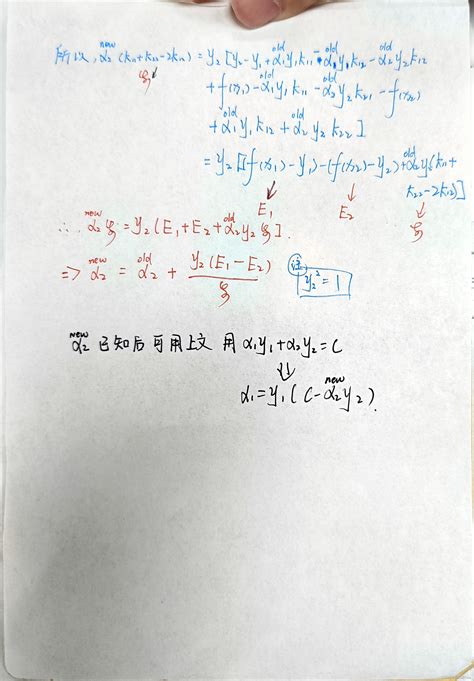 所以, α₂^new (k₁₁+k₂₂-2k₁₂) = y₂ [y₂-y₁+α₁^old y₁k₁₁-α₁^old y₁k₁₂-α₂^old y₂k₁₂
+f(x₁)-α₁^old y₁k₁₁-α₂^old y₂k₂₁-f(x₂)
+α₁^old y₁k₁₂+α₂^old y₂k₂₂]
ξ
= y₂ [(f(x₁)-y₁)-(f(x₂)-y₂)+α₂^old y₂(k₁₁+
k₂₂-2k₁₂)]
E₁ E₂ ξ
∴ α₂^new ξ = y₂(E₁+E₂+α₂^old y₂ ξ].
=> α₂^new = α₂^old + y₂(E₁-E₂)/ξ 注 y₂²=1
α₂^new 已知后可用上文 用 α₁y₁+α₂y₂=C
⇓
α₁=y₁(C-α₂^new y₂).